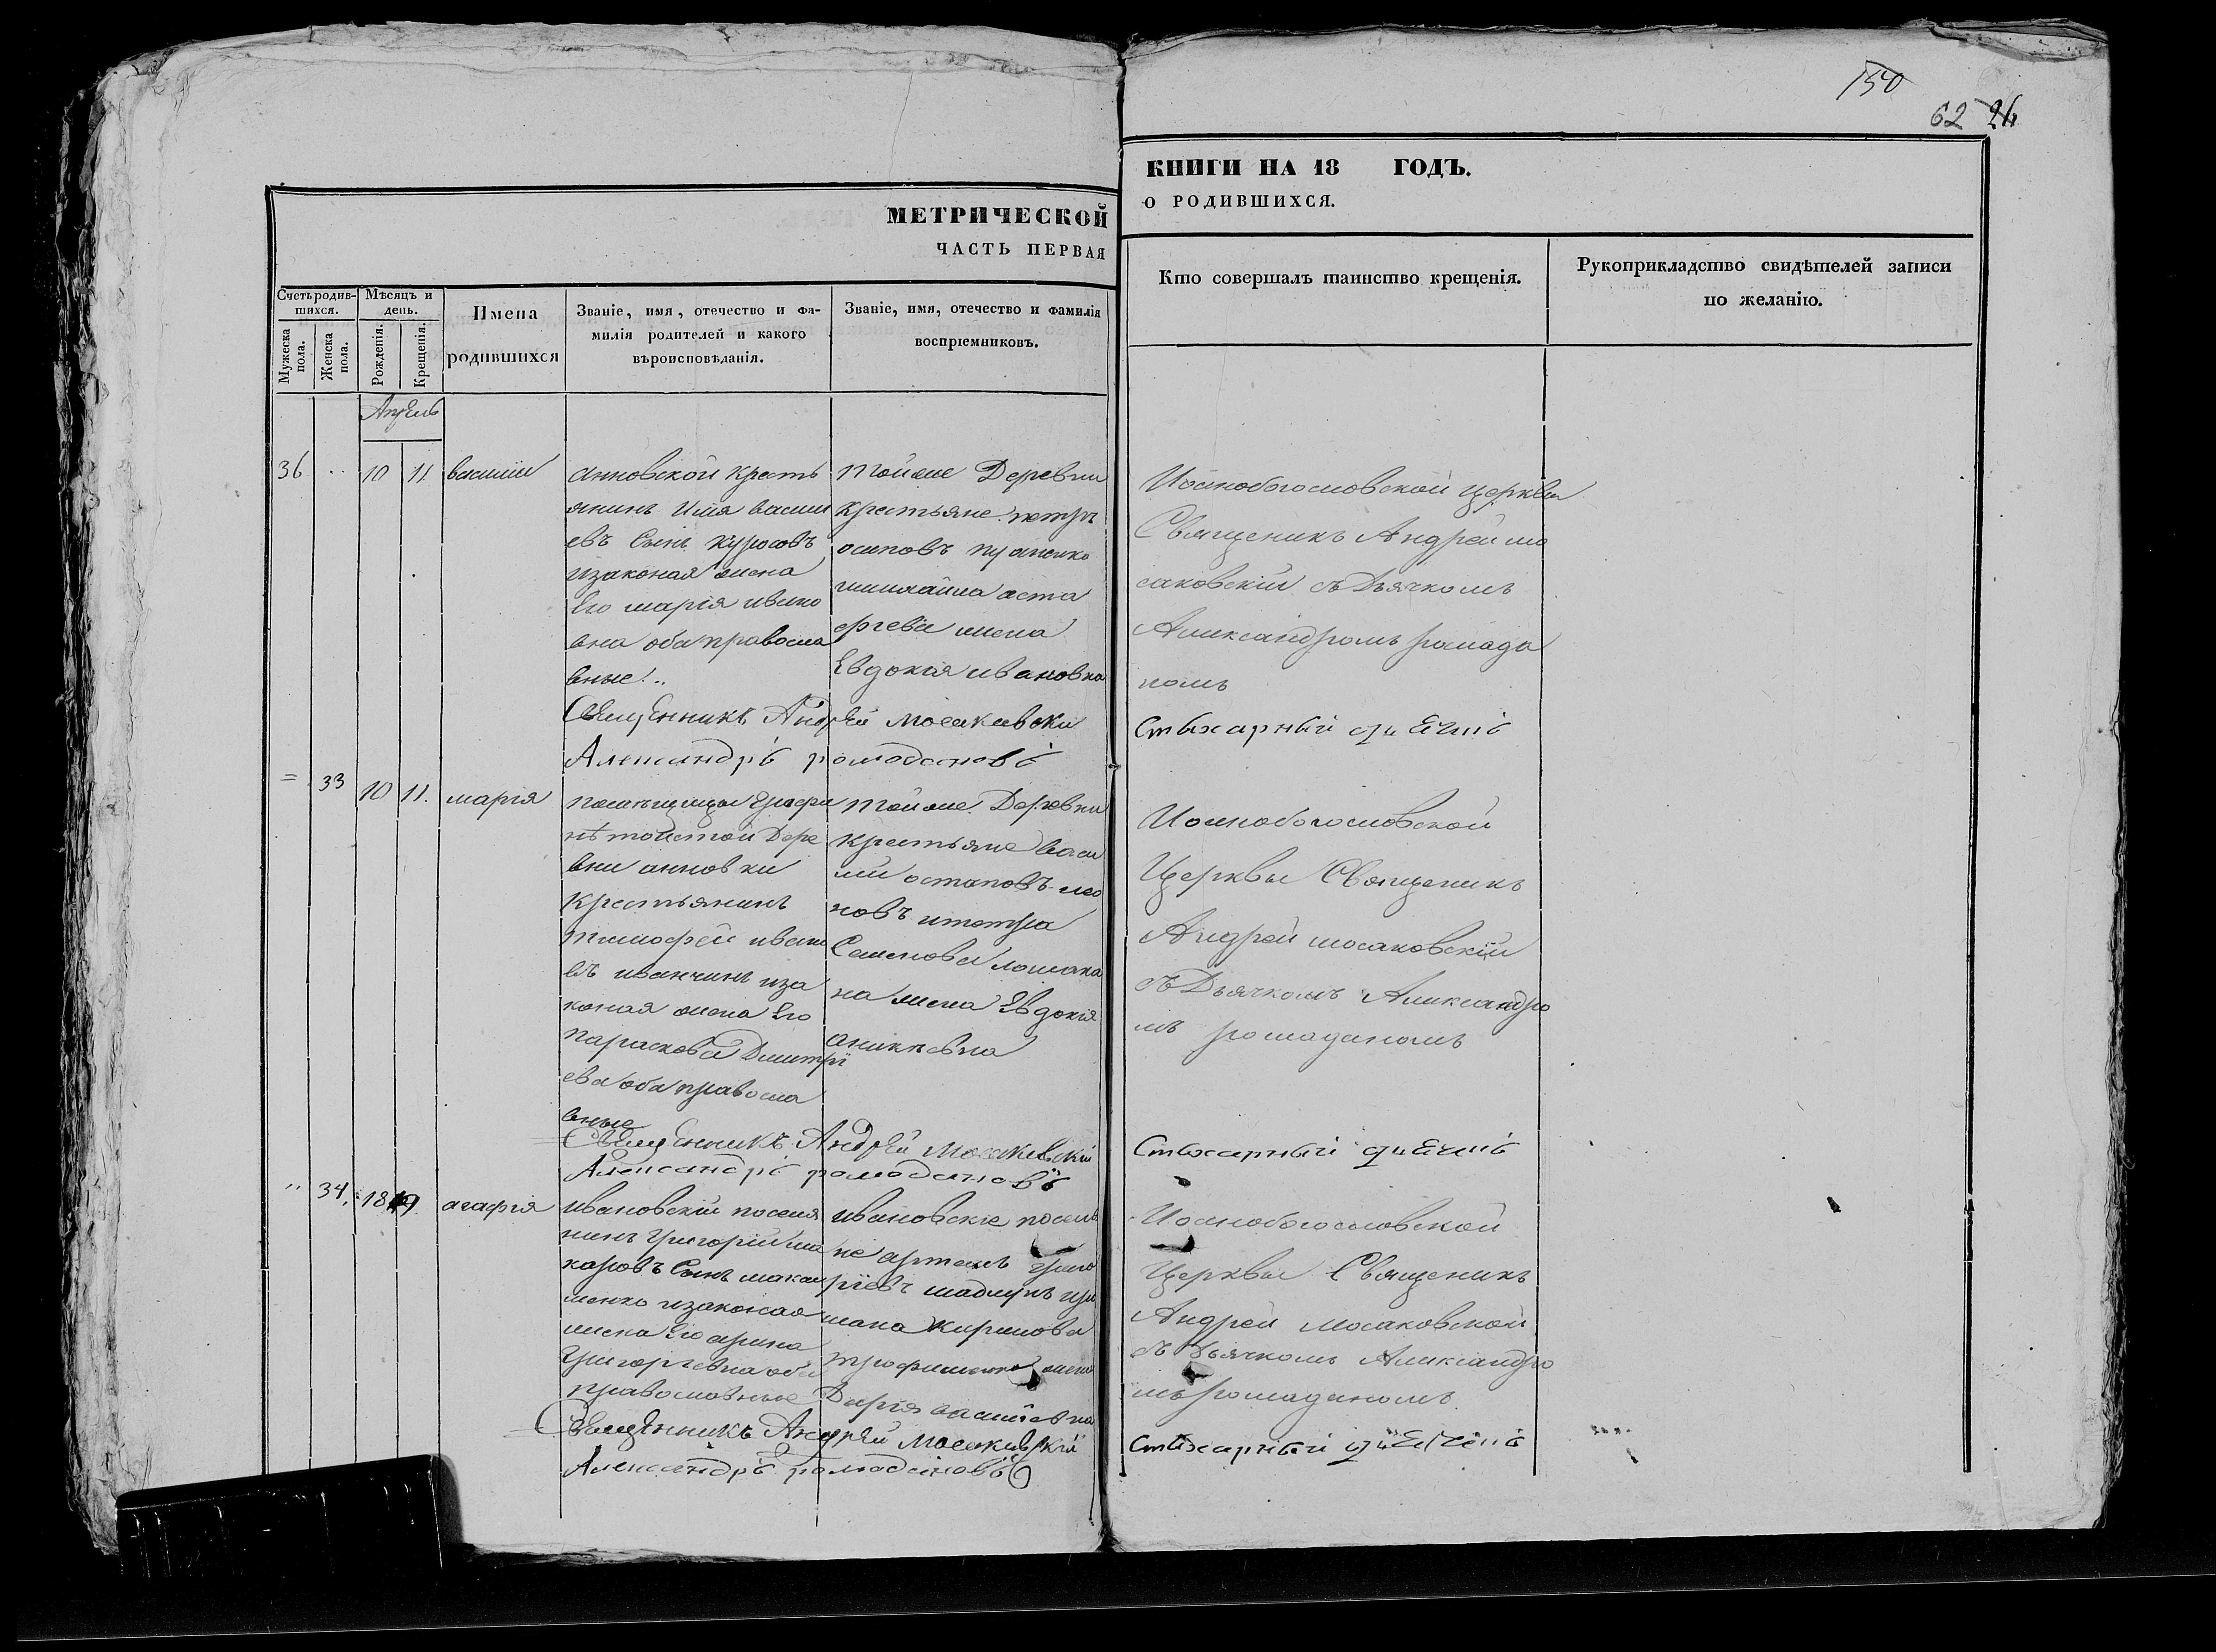 150
62 24
МЕТРИЧЕСКОЙ
ЧАСТЬ ПЕРВАЯ
КНИГИ НА 18 ГОДЪ.
О РОДИВШИХСЯ.
Счетъ родив-
шихся.
Мужеска
пола.
Женска
пола.
Мѣсяцъ и
день.
Рожденія.
Крещенія.
Имена
родившихся
Званіе, имя, отечество и фа-
милія родителей и какого
вѣроисповѣданія.
Званіе, имя, отечество и фамилія
воспріемниковъ.
Кто совершалъ таинство крещенія.
Рукоприкладство свидѣтелей записи
по желанію.
Апрель
36 .. 10 11 василіи
анновской кресть
янинъ Илья васили
евъ Сынъ
изаконая жена
Его марія ивано
вна оба правосла
вные..
Тойже Деревни
крестьяне петръ
осиповъ
жена
Евдокія ивановна
Иоанобогословской церквы
Священикъ Андрей мо
саковскій съ Дьячкомъ
Александромъ ромада
номъ
Священникъ Андрей Мосаковски
Александръ ромодановъ
Стихарный
= 33 10 11. марія
помѣщицы Графи
нѣ толстой Дере
вни анновки
Крестьянинъ
тимофей ивано
въ иванчинъ иза
коная жена Его
параскова Дмитрі
ева оба правосла
вные
Тойже Деревни
крестьяне васи
лій остаповъ лео
новъ ипетра
Семенова
на жена Евдокія
аникѣевна
Иоанобогословской
Церквы Священикъ
Андрей мосаковскій
съ Дьячкомъ Александро
мъ ромаданомъ
Священникъ Андрей Мосаковскій
Александръ ромодановъ
Стихарный
" 34. 18 19 агафія
ивановскій поселя
нинъ Григорій ма
каровъ Сынъ макаи
менко изаконая
жена Его арина
Григоргевна оба
православные
ивановские поселя
не артемъ григо
ріевъ
Кирилова
жена
Дарія василіевна
Иоанобогословской
Церквы Священикъ
Андрей мосаковской
съ Дьячкомъ Александро
мъ ромаданомъ
Священникъ Андрей Мосаковскій
Александръ ромодановъ
Стихарный